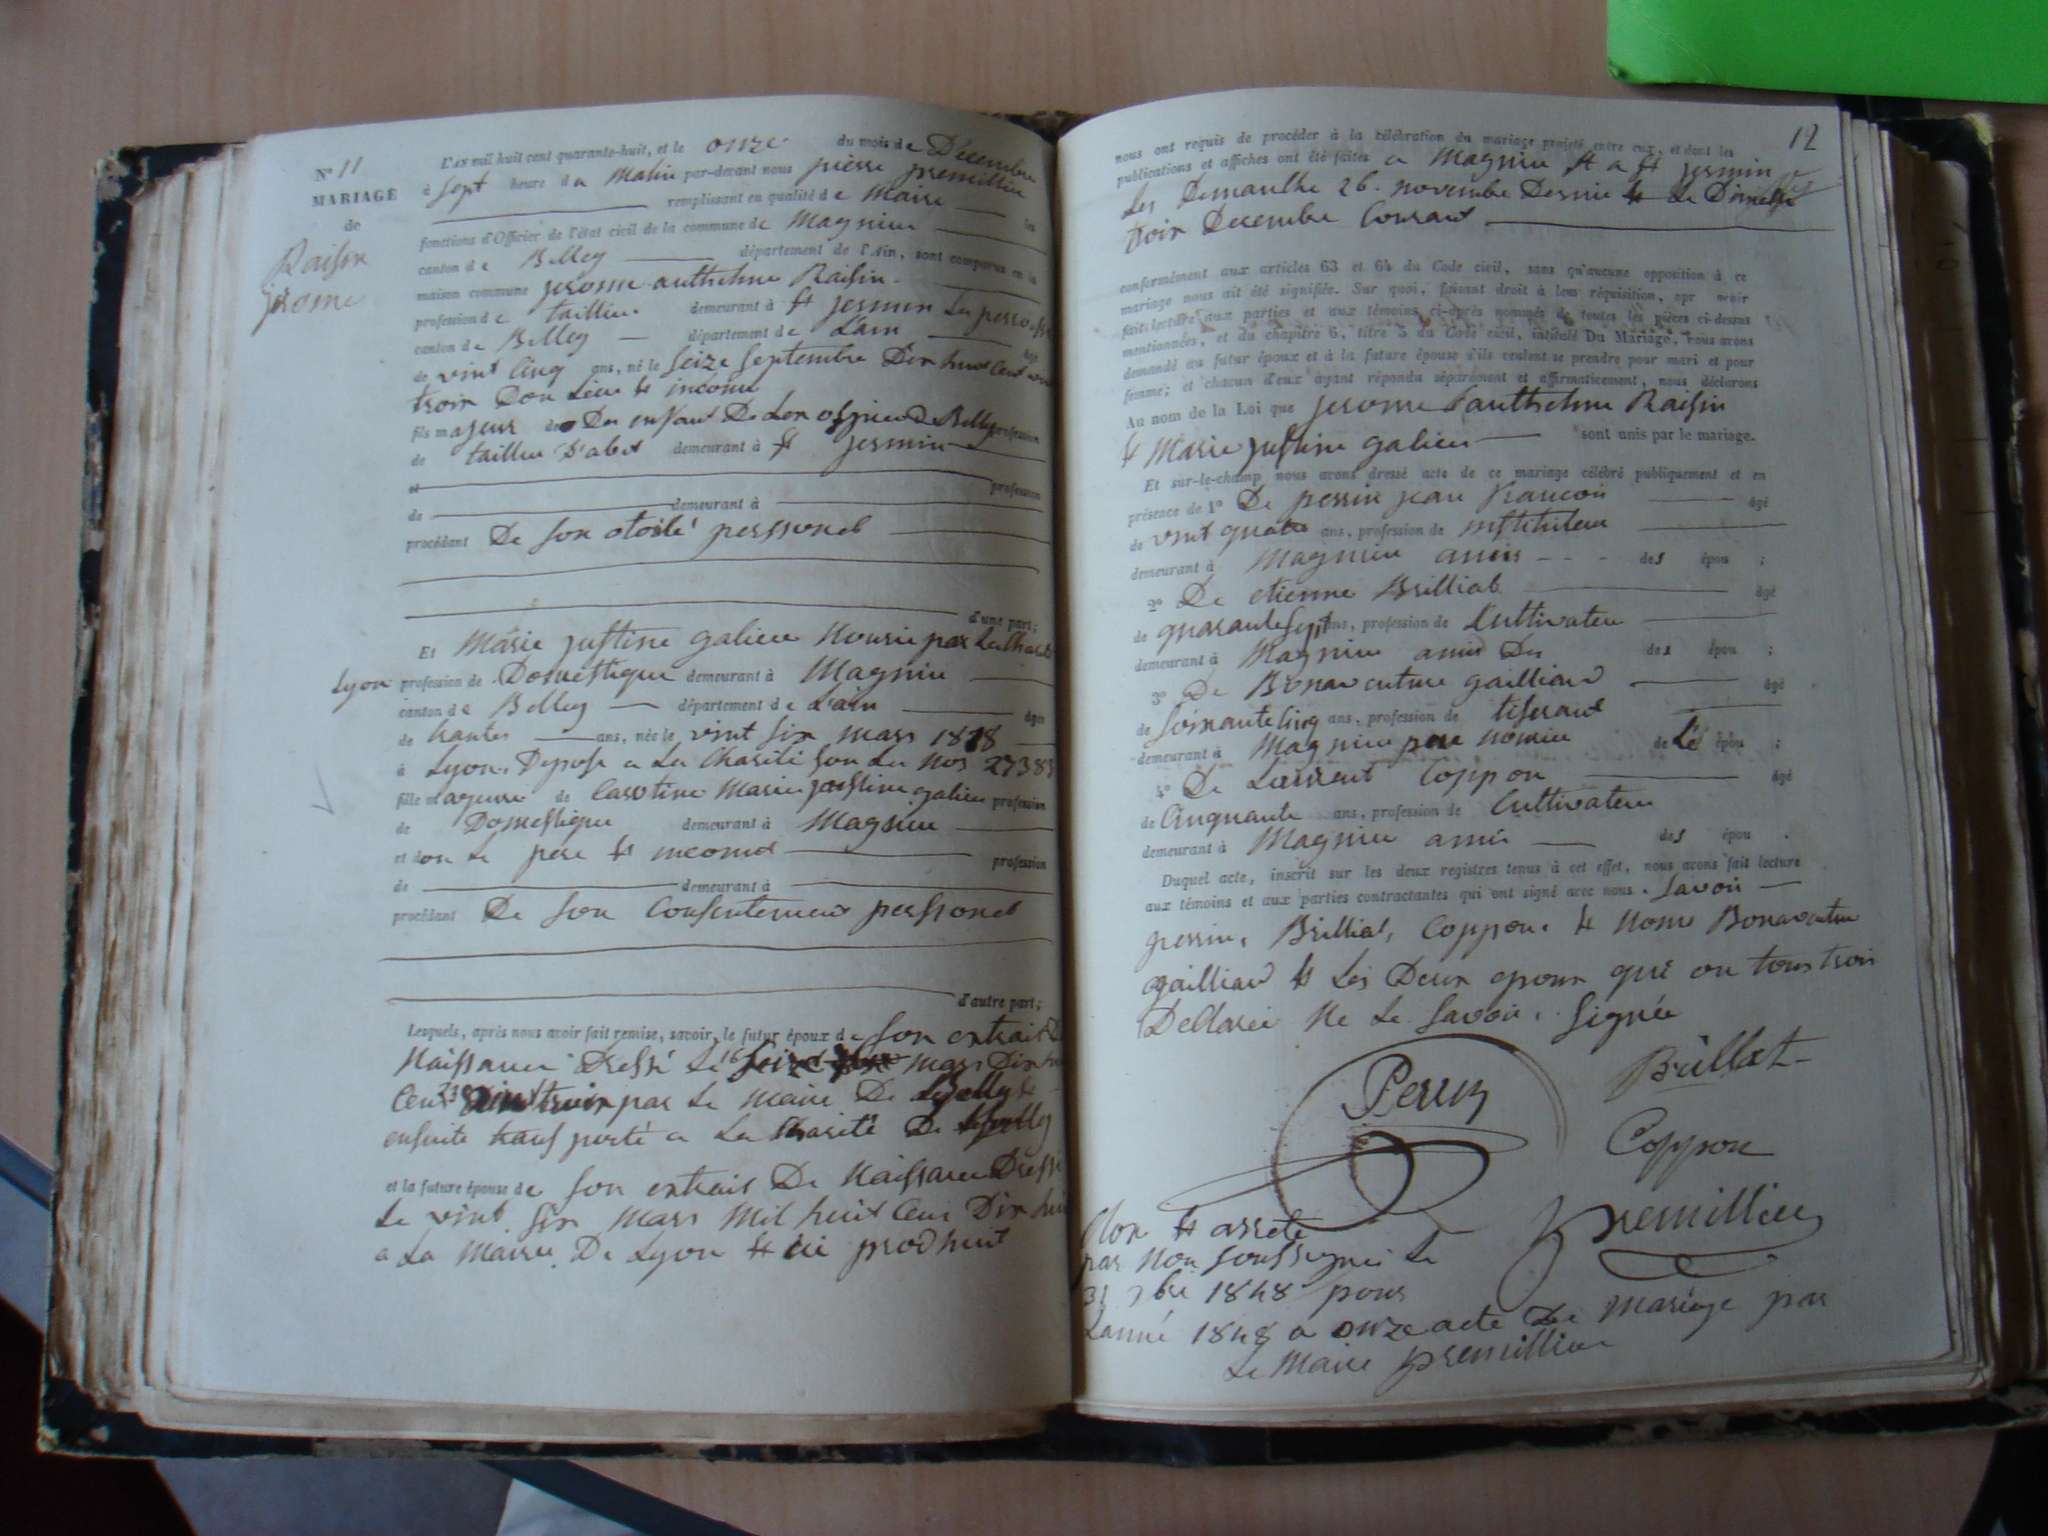 N° 11
MARIAGE
de
Raisin
jerome
L'AN mil huit cent quarante-huit, et le onze du mois de Décembre
à sept heure du matin par-devant nous pierre premillieu
remplissant en qualité de maire les
fonctions d'Officier de l'état civil de la commune de Magnieu
canton de Belley département de l'Ain, sont comparus en la
maison commune jerome anthelme Raisin
profession de taillieu demeurant à st jermin les
canton de Belley département de L'ain âgé
de vint cinq ans, né le seize septembre Dix huit cent vint
trois Don Lieu et inconu
fils majeur des enfant De Los
profession
de taillieu D'abit demeurant à st jermin
et profession
de demeurant à
procédant De son otorité perssonel
d'une part;
Et Marie justine galieu Nourie par La Charité
Lyon profession de Domestique demeurant à Magnieu
canton de Belley département de L'ain âgée
de trante ans, née le vint six mars 1818
à Lyon. Depose a La Charité sou Les nos 27383
fille mageure de Carotine Marie justine galieu profession
de Domestique demeurant à Magnieu
et don Le pere et inconu profession
de demeurant à
procédant De son Consentement perssonel
d'autre part;
Lesquels, après nous avoir fait remise, savoir, le futur époux de son extrait De
Naissance Dressé Le 16 mars Dix huit
Cent 23 par Le maire De Belley et
ensuite transporté a La Charité De Belley
et la future épouse de son extrait De Naissance Dressé
Le vint six mars mil huit Cent Dix huit
a La Mairie De Lyon et ici produit
12
nous ont requis de procéder à la célébration du mariage projeté entre eux, et dont les
publications et affiches ont été faites a Magnieu et a st jermin
Les Demanche 26 novembre Dernie et Le
trois Decembre Courant
conformément aux articles 63 et 64 du Code civil, sans qu'aucune opposition à ce
mariage nous ait été signifiée. Sur quoi, faisant droit à leur réquisition, après avoir
fait lecture aux parties et aux témoins ci-après nommés de toutes les pièces ci-dessus
mentionnées, et du chapitre 6, titre 5 du Code civil, intitulé Du Mariage, nous avons
demandé au futur époux et à la future épouse s'ils veulent se prendre pour mari et pour
femme; et chacun d'eux ayant répondu séparément et affirmativement, nous déclarons
Au nom de la Loi que jerome anthelme Raisin
et Marie justine galieu sont unis par le mariage.
Et sur-le-champ nous avons dressé acte de ce mariage célébré publiquement et en
présence de 1° De perrin jean francois âgé
de vint quatre ans, profession de instituteur
demeurant à Magnieu amis des épou ;
2° De etienne Brilliat âgé
de quarante sept ans, profession de Cultivateu
demeurant à Magnieu amis Des des épou ;
3° De Bonaventure gailliard âgé
de soixante cinq ans, profession de tiserant
demeurant à Magnieu pere nourcie de Lé épou ;
4° De Laurent Coppon âgé
de Cinquante ans, profession de Cultivateu
demeurant à Magnieu amis des épou .
Duquel acte, inscrit sur les deux registres tenus à cet effet, nous avons fait lecture
aux témoins et aux parties contractantes qui ont signé avec nous. savoir
perrin, Brilliat, Coppon. et nom Bonaventure
gailliard et Les Deux epoux qui on tous trois
Declaree Ne Le Savoir. Signée
Perrin
Brillat
Coppon
premillieu
Clon et arreté
par Nou soussignié Le
31 xbre 1848 pour
L'anné 1848 a onze acte De Mariage par
Le Maire premillieu